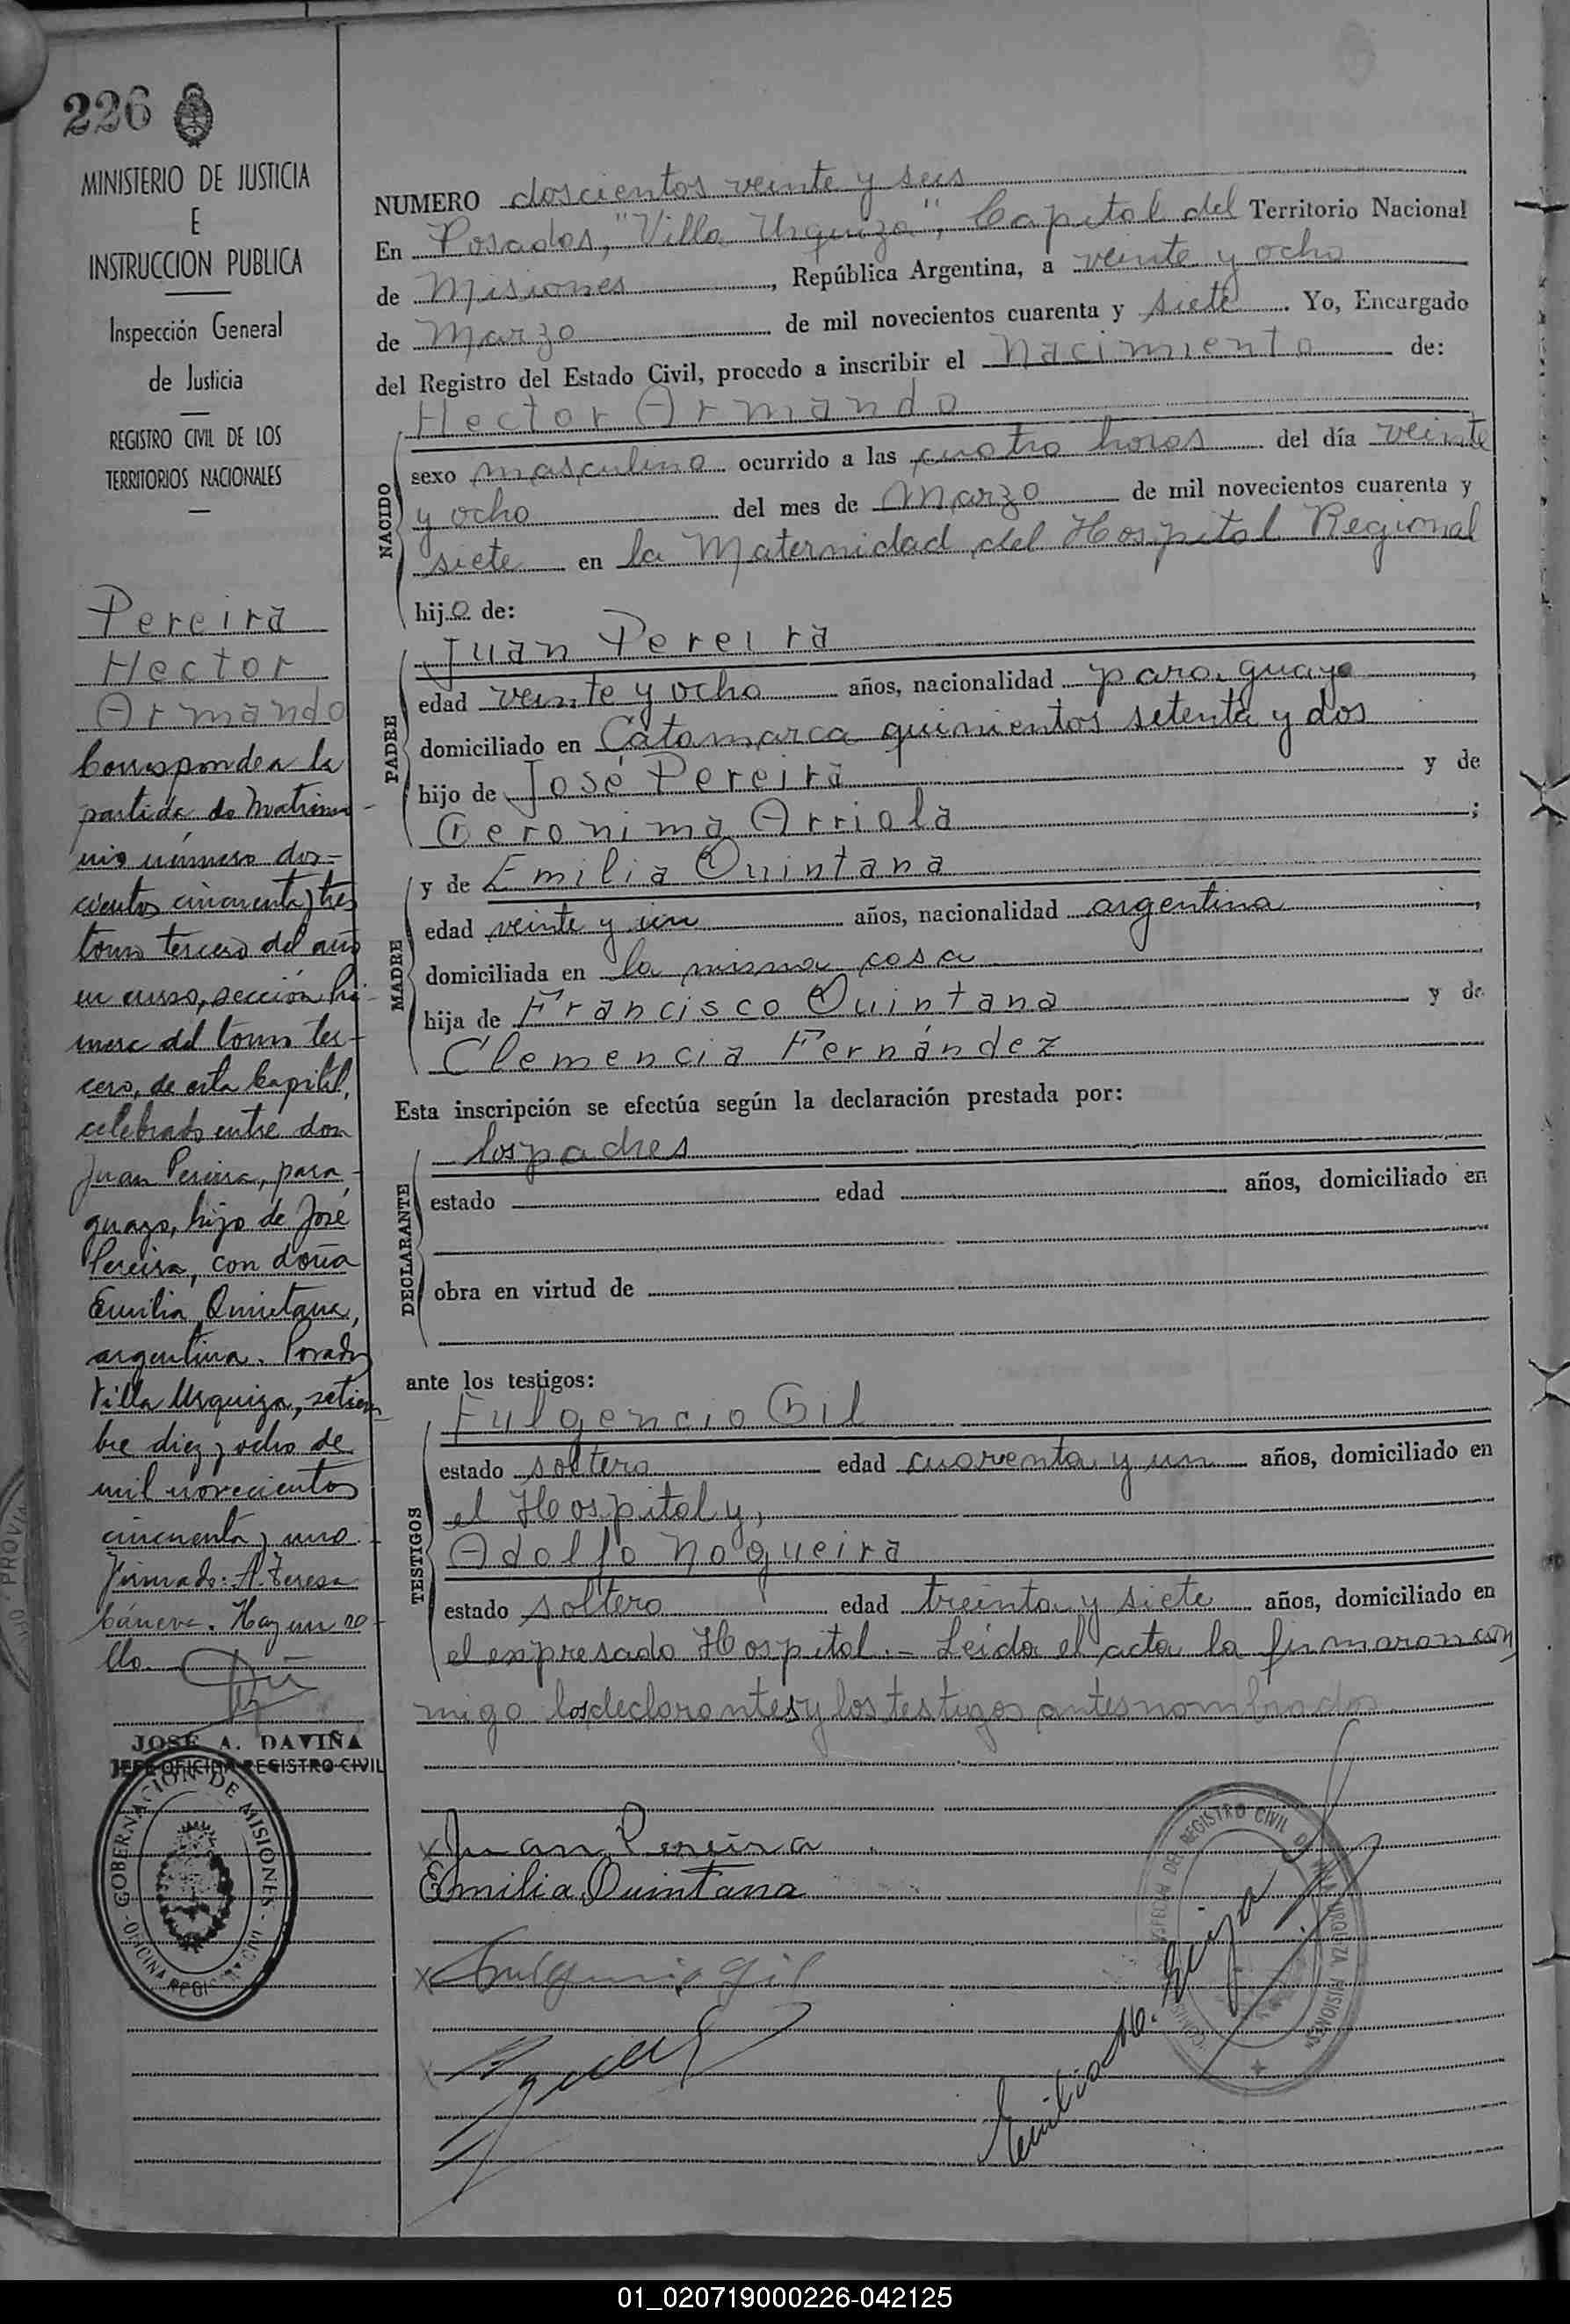 226
MINISTERIO DE JUSTICIA
E
INSTRUCCION PUBLICA
Inspección General
de Justicia
REGISTRO CIVIL DE LOS
TERRITORIOS NACIONALES
Pereira
Hector
Armando
Corresponde a la
partida de Matrimo-
nio número dos-
cientos cincuenta y tres
tomo tercero del año
en curso, sección pri-
mera del tomo ter-
cero, de esta Capital,
celebrado entre don
Juan Pereira, para-
guayo, hijo de José
Pereira, con doña
Emilia Quintana,
argentina. Posadas
Villa Urquiza, setiem-
bre diez y ocho de
mil novecientos
cincuenta y uno.
Firmado: A. Teresa
Hay un se-
llo.
JOSE A. DAVIÑA
JEFE OFICINA REGISTRO CIVIL
GOBERNACION DE MISIONES
NUMERO doscientos veinte y seis
En Posadas, "Villa Urquiza", Capital del Territorio Nacional
de Misiones, República Argentina, a veinte y ocho
de Marzo de mil novecientos cuarenta y siete. Yo, Encargado
del Registro del Estado Civil, procedo a inscribir el Nacimiento de:
NACIDO
Hector Armando
sexo masculino ocurrido a las cuatro horas del día veinte
y ocho del mes de Marzo de mil novecientos cuarenta y
siete en la Maternidad del Hospital Regional
hijo de:
PADRE
Juan Pereira
edad veinte y ocho años, nacionalidad paraguayo,
domiciliado en Catamarca quinientos setenta y dos
hijo de José Pereira y de
Geronima Arriola;
MADRE
y de Emilia Quintana
edad veinte y un años, nacionalidad argentina,
domiciliada en la misma casa
hija de Francisco Quintana y de
Clemencia Fernández
Esta inscripción se efectúa según la declaración prestada por:
DECLARANTE
los padres
estado edad años, domiciliado en
obra en virtud de
ante los testigos:
TESTIGOS
Fulgencio Gil
estado soltero edad cuarenta y un años, domiciliado en
el Hospital y,
Adolfo Nogueira
estado soltero edad treinta y siete años, domiciliado en
el expresado Hospital.- Leida el acta la firmaron con
migo los declarantes y los testigos antes nombrados
x Juan Pereira
Emilia Quintana
x Fulgencio Gil
REGISTRO CIVIL DE VILLA URQUIZA MISIONES
01_020719000226-042125